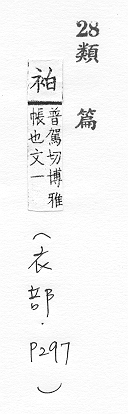 28類篇
袙
普駕切博雅
帳也文一
(衣部.P297)